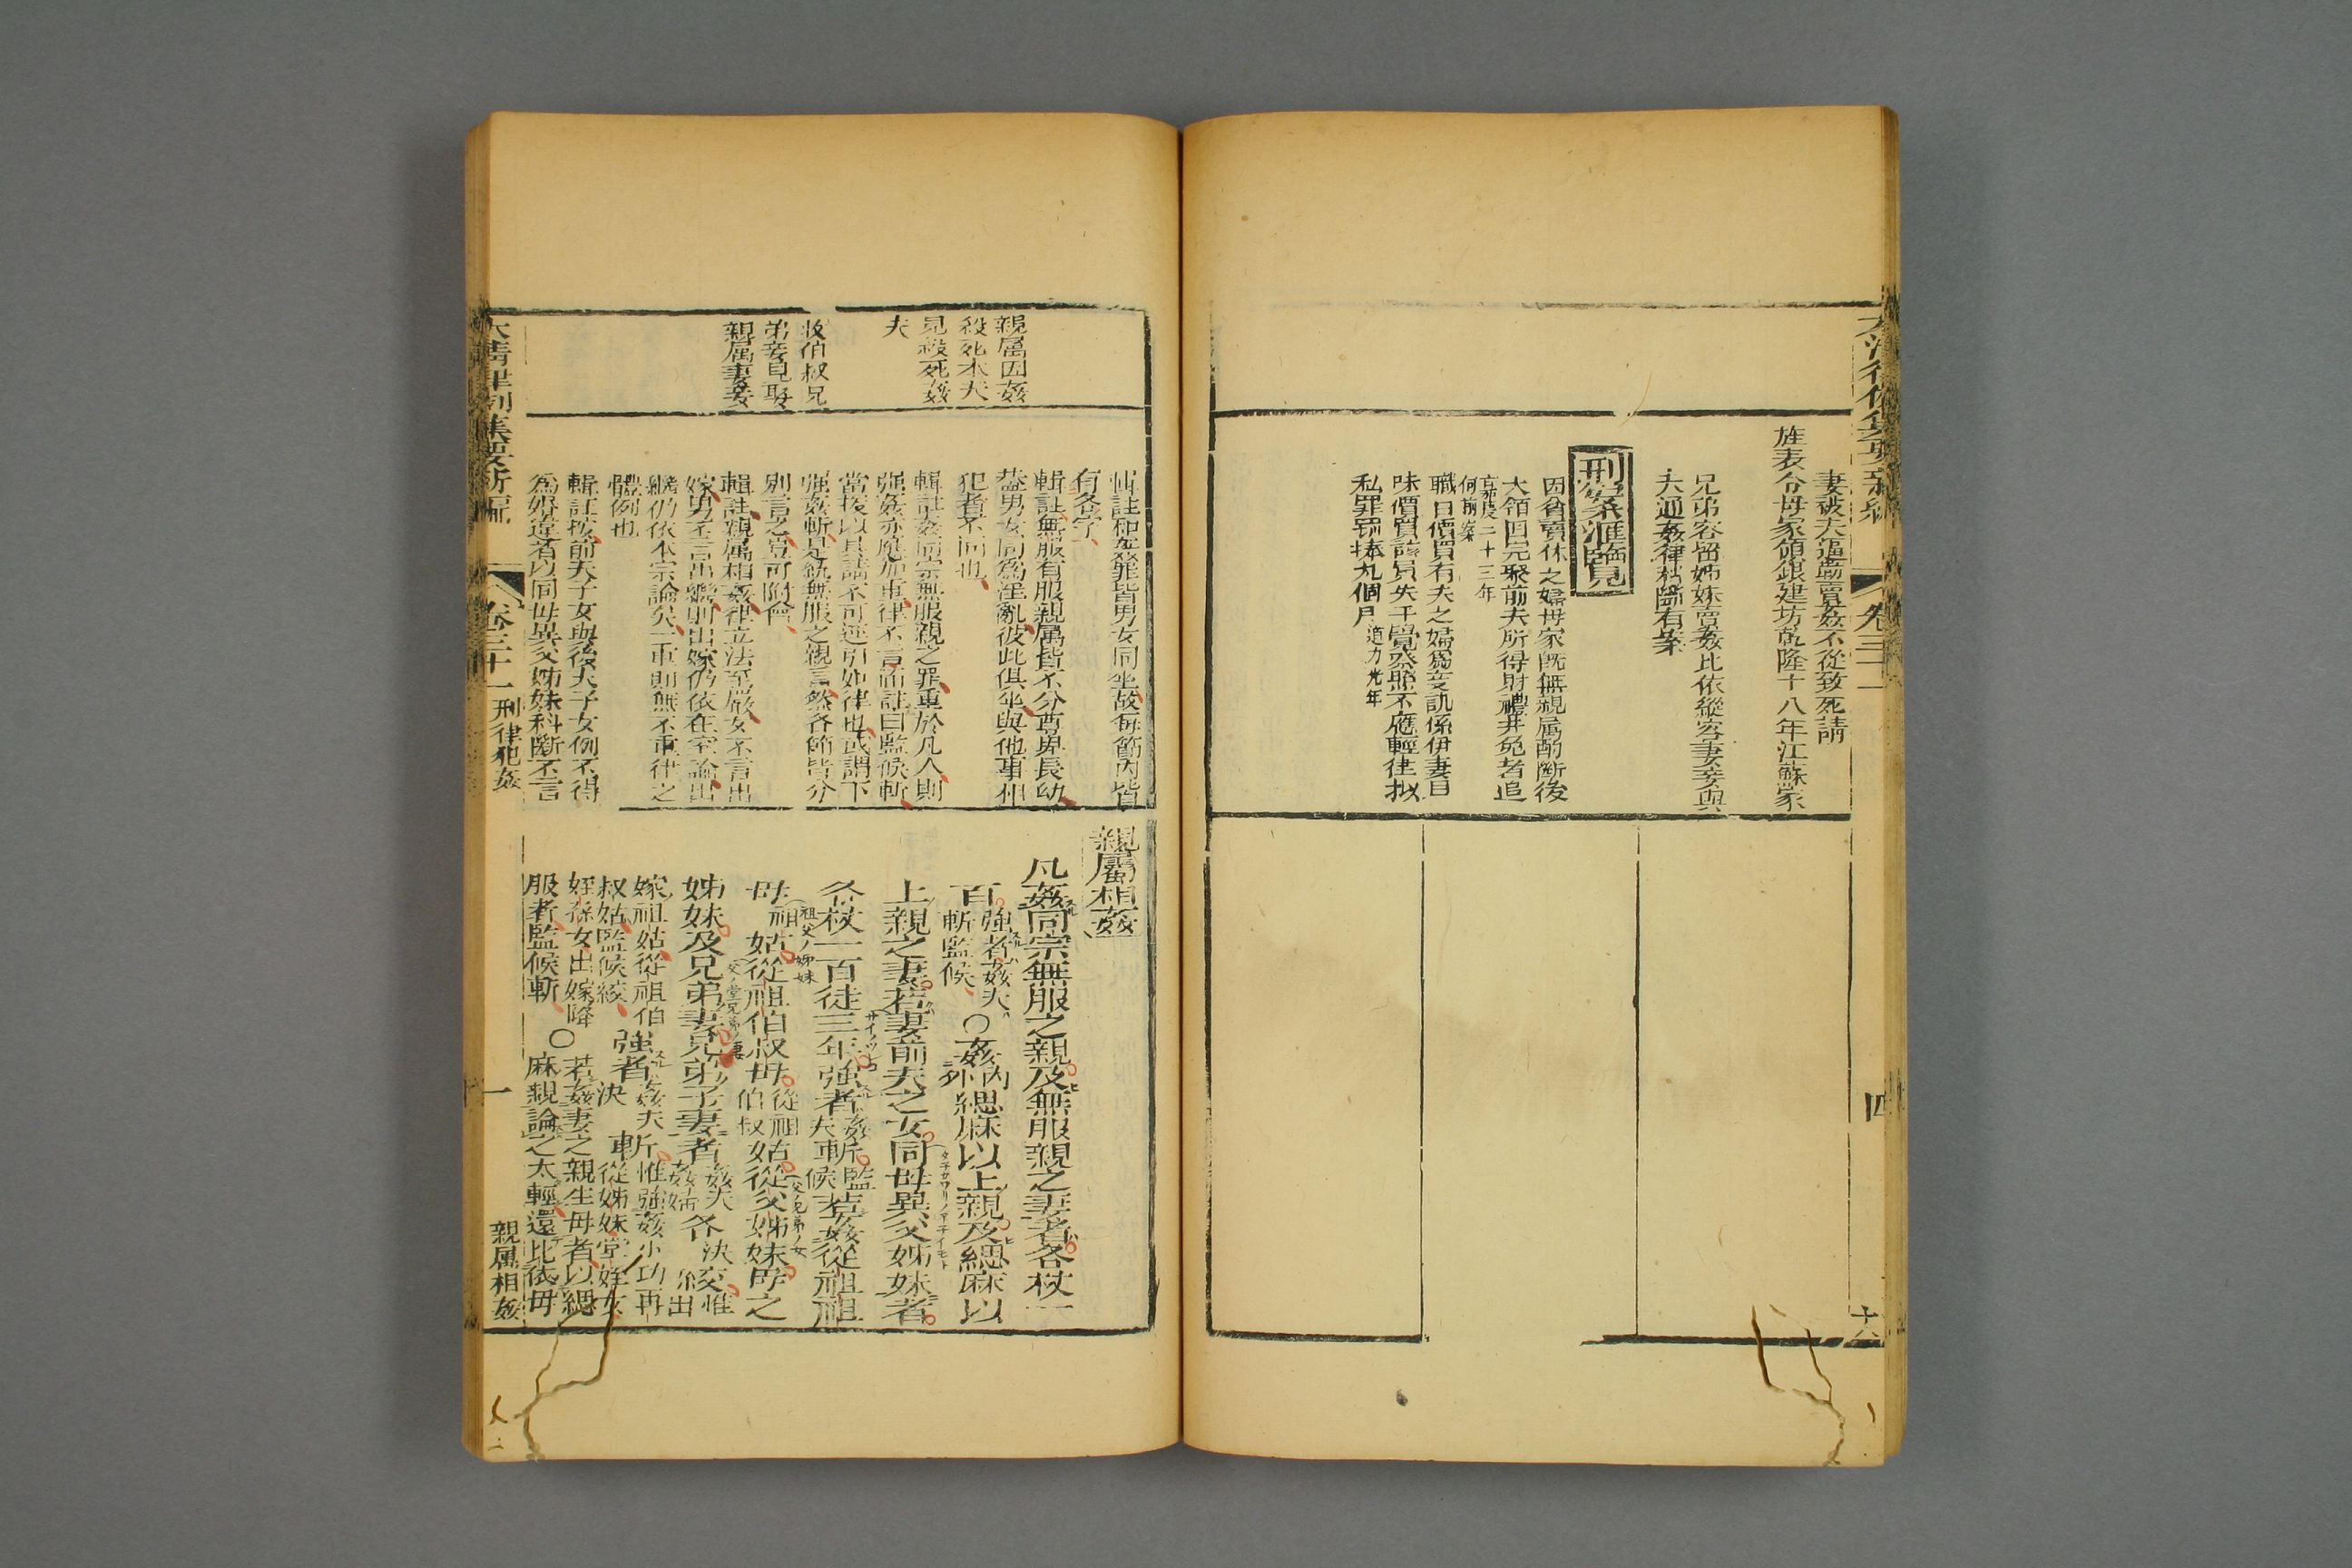 妻被夫逼勒賣姦不從致死請
旌表分母家領銀建坊乾隆十八年江蘇案
兄弟容留姊妹賣姦比依縱容妻妾與
夫通姦律科斷有案
刑案滙覽
因貧賣休之婦母家旣無親属酌斷後
夫領回完聚前夫所得財禮幷免着追
嘉慶二十三年
何前案
職員價買有夫之婦爲妾訊係伊妻目
昧價買該員失于覺察照不應輕律拟
私罪罰俸九個月道光年
卷三十一
四
十六
親属因姦
殺死本夫
見殺死姦
夫
收伯叔兄
弟妾見娶
親属妻妾
輯註和姦罪皆男女同坐故每節内皆
有各字
輯註無服有服親属皆不分尊卑長幼
葢男女同爲淫亂彼此俱坐與他事相
犯者不同也
輯註姦同宗無服親之罪重於凡人則
强姦亦應加重律不言而註曰監候斬
當援以具請不可逕引如律也或謂下
强姦斬是統無服之親言然各節皆分
別言之豈可附會
輯註親属相姦律立法至嚴女不言出
嫁男不言出繼則出嫁仍依在室論出
繼仍依本宗論矣一重則無不重律之
體例也
輯註按前夫子女與後夫子女例不得
爲婚違者以同母異父姊妹科斷不言
親屬相姦
凡姦同宗無服之親及無服親之妻者各杖一
百強者姦夫
斬監候
○姦内
外緦麻以上親及緦麻以
上親之妻若妻前夫之女同母異父姊妹者
各杖一百徒三年強者姦
夫斬監
候若姦從祖祖
母祖姑從祖伯叔母從祖
伯叔姑從父姊妹母之
姊妹及兄弟妻兄弟子妻者姦夫
姦婦各決絞惟
出
嫁祖姑從祖伯
叔姑監候絞
強者姦夫
決斬惟強姦小功再
從姊妹堂姪女
姪孫女出嫁降
服者監候斬
○若姦妻之親生母者以緦
麻親論之太輕還比依母
大清律例集要新編
卷三十一
刑律犯姦
一
親属相姦